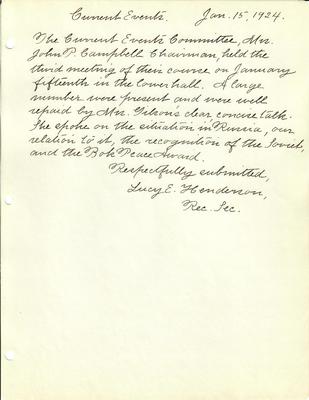 Current Events. Jan. 15, 1924.
The Current Events Committee, Mrs.
John P. Campbell Chairman, held the
third meeting of their course on January
fifteenth in the lower hall. A large
number were present and were well
repaid by Mrs. Gilson's clear concise talk.
She spoke on the situation in Russia, our
relation to it, the recognition of the Soviet,
and the Bok Peace Award.
Respectfully submitted,
Lucy E. Henderson,
Rec. Sec.